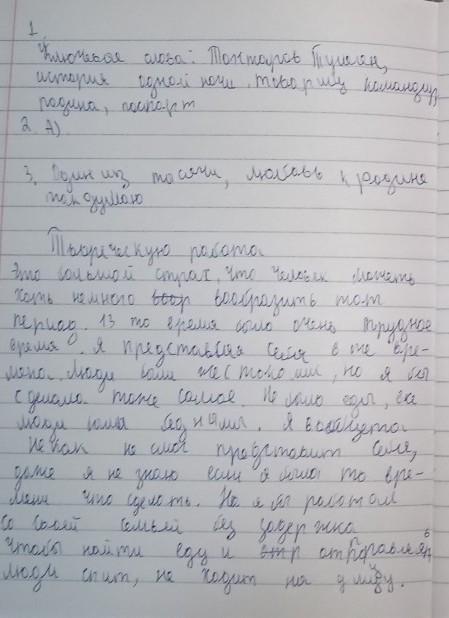 1.
Ключевая слова: Тонтаров Тулеген,
история одной ночи, товарищ командир,
родина, паспорт
2. А)
3. Один из тысячи, любовь к родине
так думаю
Творческую работа
Это большой страх, что человек может
хоть немного вообразить тот
период. В то время было очень трудное
время. Я представляя себя в
мена. Люди были жестокими, но я бы
сделала тоже самое. Не было еды, все
люди были бедными. Я вообще
Некак не смог представит себя,
даже я не знаю если я была то вре-
мени что сделать. Но я бы работал
со своей семьей без задержка
чтобы найти еду и отправлять
люди спит, не ходит на улицу.